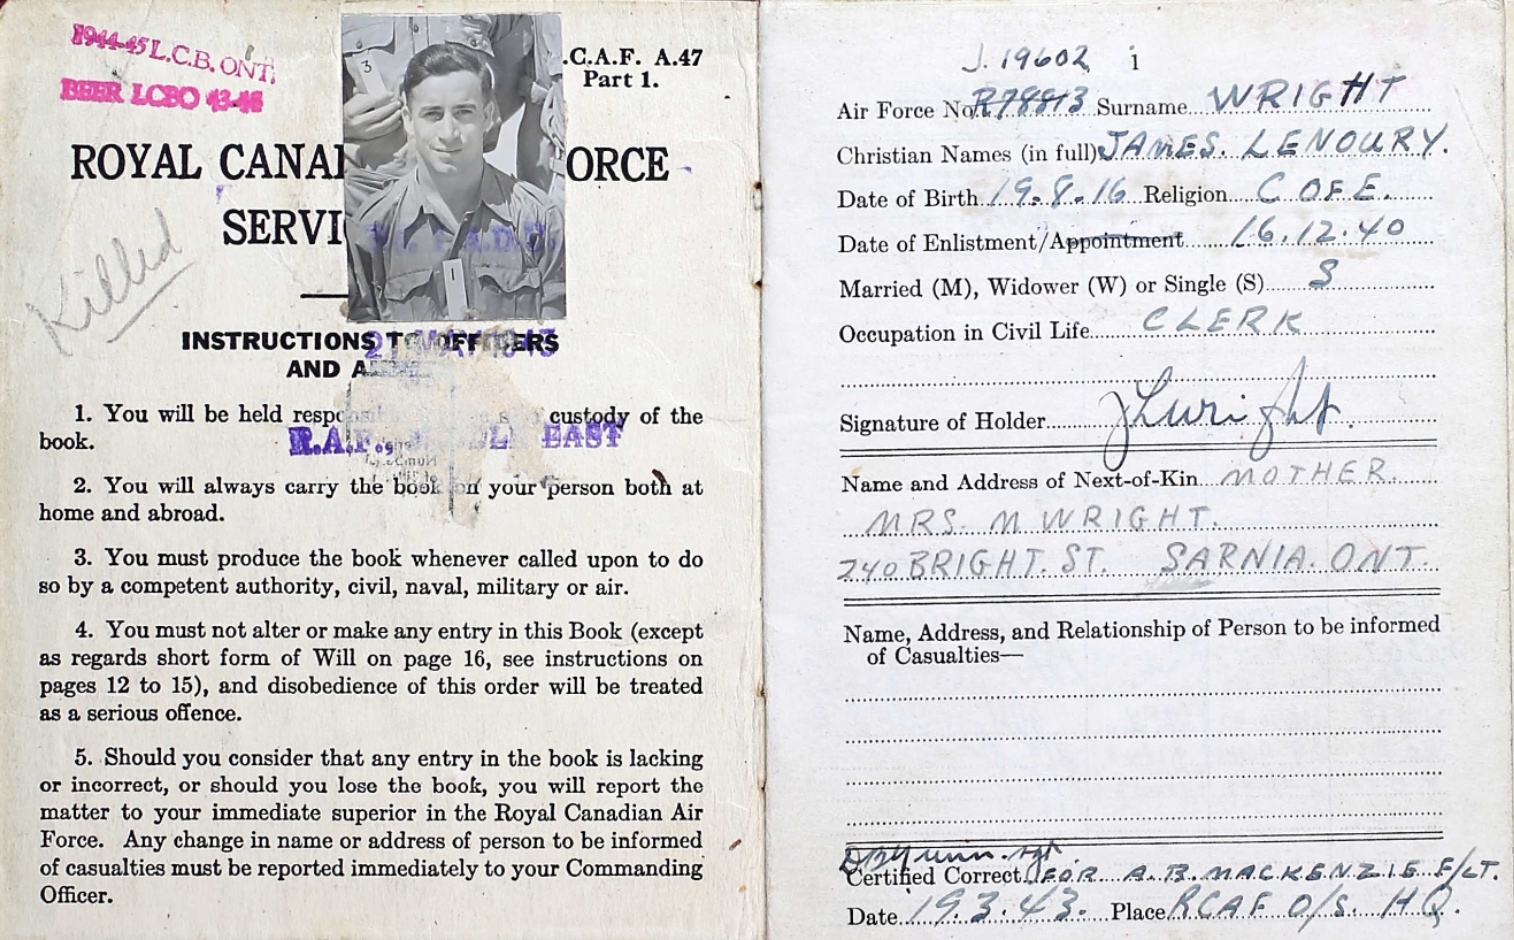 1944-45 L.C.B. ONT.
BEER LCBO 43-
.C.A.F. A.47
Part 1.
3
ROYAL CANA ORCE
SERVI
1
Killed
INSTRUCTIONS TO OFFICERS
AND A
1. You will be held responsible custody of the
book.
R.A.F. MIDDLE EAST
2. You will always carry the book on your person both at
home and abroad.
3. You must produce the book whenever called upon to do
so by a competent authority, civil, naval, military or air.
4. You must not alter or make any entry in this Book (except
as regards short form of Will on page 16, see instructions on
pages 12 to 15), and disobedience of this order will be treated
as a serious offence.
5. Should you consider that any entry in the book is lacking
or incorrect, or should you lose the book, you will report the
matter to your immediate superior in the Royal Canadian Air
Force. Any change in name or address of person to be informed
of casualties must be reported immediately to your Commanding
Officer.
J. 19602 i
Air Force No. R78813 Surname WRIGHT
Christian Names (in full) JAMES. LENOURY.
Date of Birth 19.8.16 Religion C OF E.
Date of Enlistment/Appointment 16.12.40
Married (M), Widower (W) or Single (S) S
Occupation in Civil Life CLERK
Signature of Holder JLWright.
Name and Address of Next-of-Kin MOTHER.
MRS. M WRIGHT.
240 BRIGHT. ST. SARNIA. ONT.
Name, Address, and Relationship of Person to be informed
of Casualties—
Certified Correct FOR A.B. MACKENZIE F/LT.
Date 19.3.43. Place RCAF O/S. HQ.